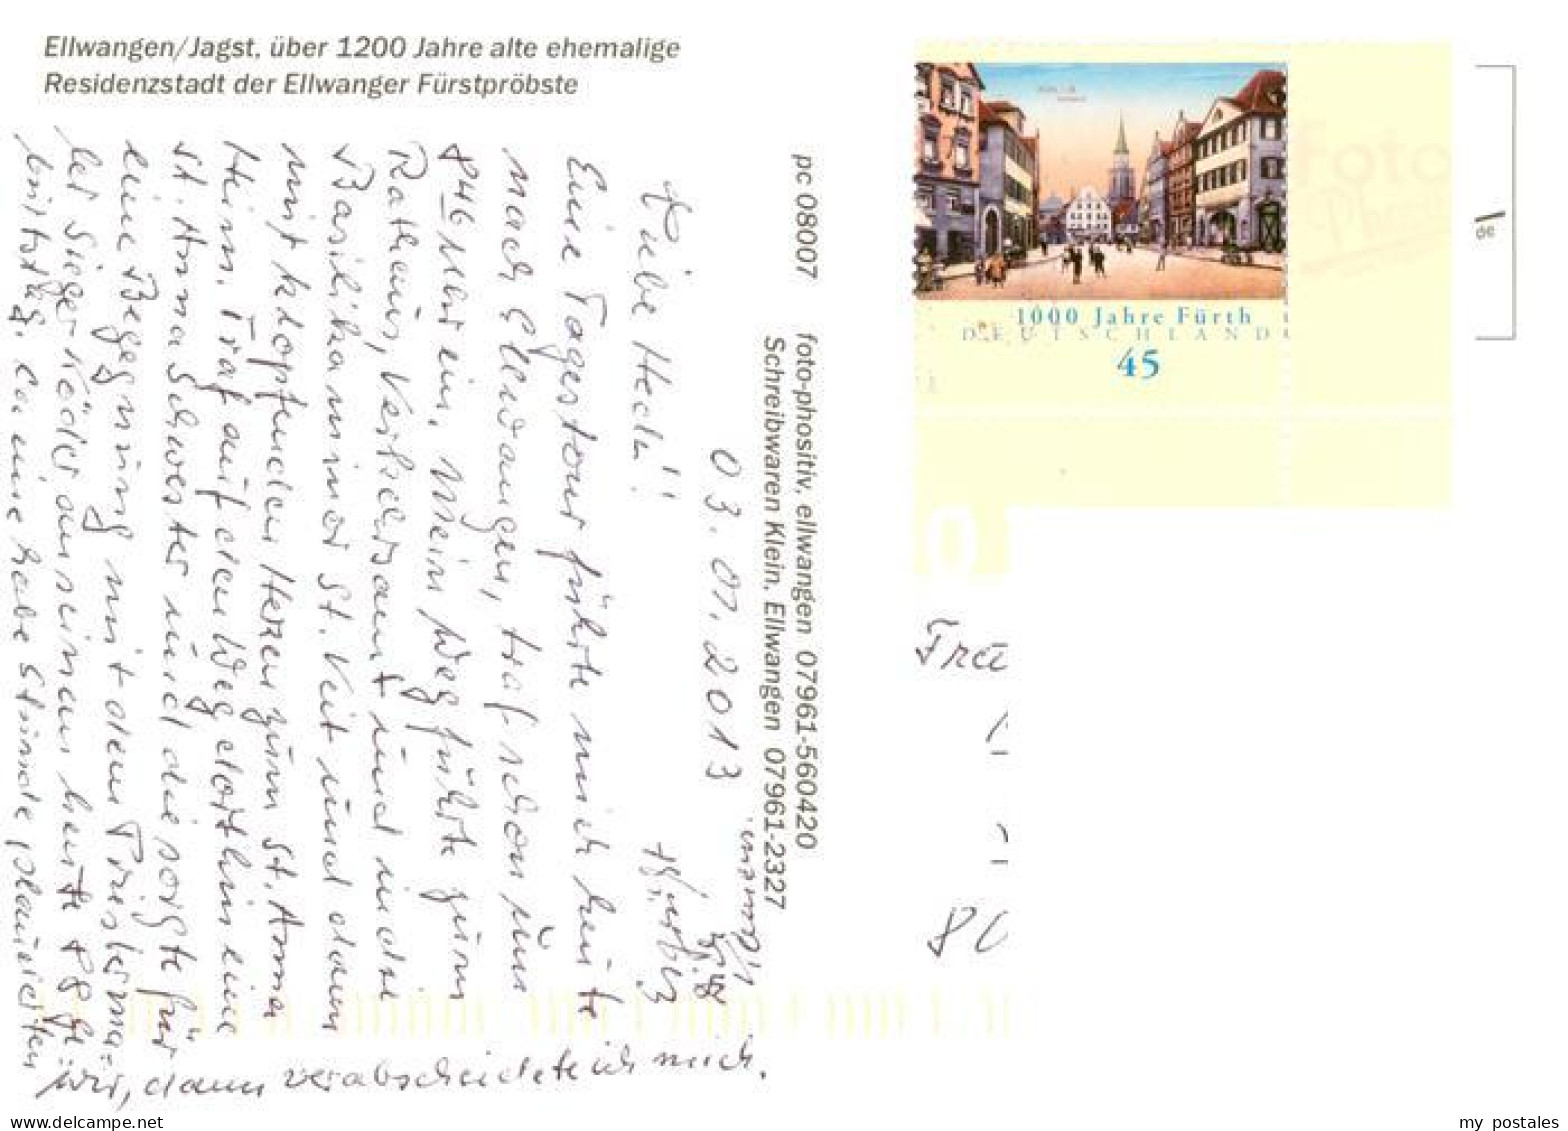 Ellwangen/Jagst, über 1200 Jahre alte ehemalige
Residenzstadt der Ellwanger Fürstpröbste
pc 08007 foto-phositiv, ellwangen 07961-560420
Schreibwaren Klein, Ellwangen 07961-2327
03.01.2013
Liebe Hedl!
Eine Tagestour führte mich heute
nach Ellwangen, traf schon um
846 Uhr ein. Mein Weg führte zum
Rathaus, Verkehrsamt und in die
Basilika minor St. Veit und dann
mit klopfenden Herzen zum St. Anna
Heim. Traf auf dem Weg dorthin eine
St. Anna Schwester und die sorgte für
eine Begegnung mit dem
bei Sieger Köder an seinem heute 88 Ge-
burtstag. Ca eine habe Stunde plauderten
wir, dann verabschiedete ich mich.
1000 Jahre Fürth
DEUTSCHLAND
45
Foto
de
Frau
80
my postales